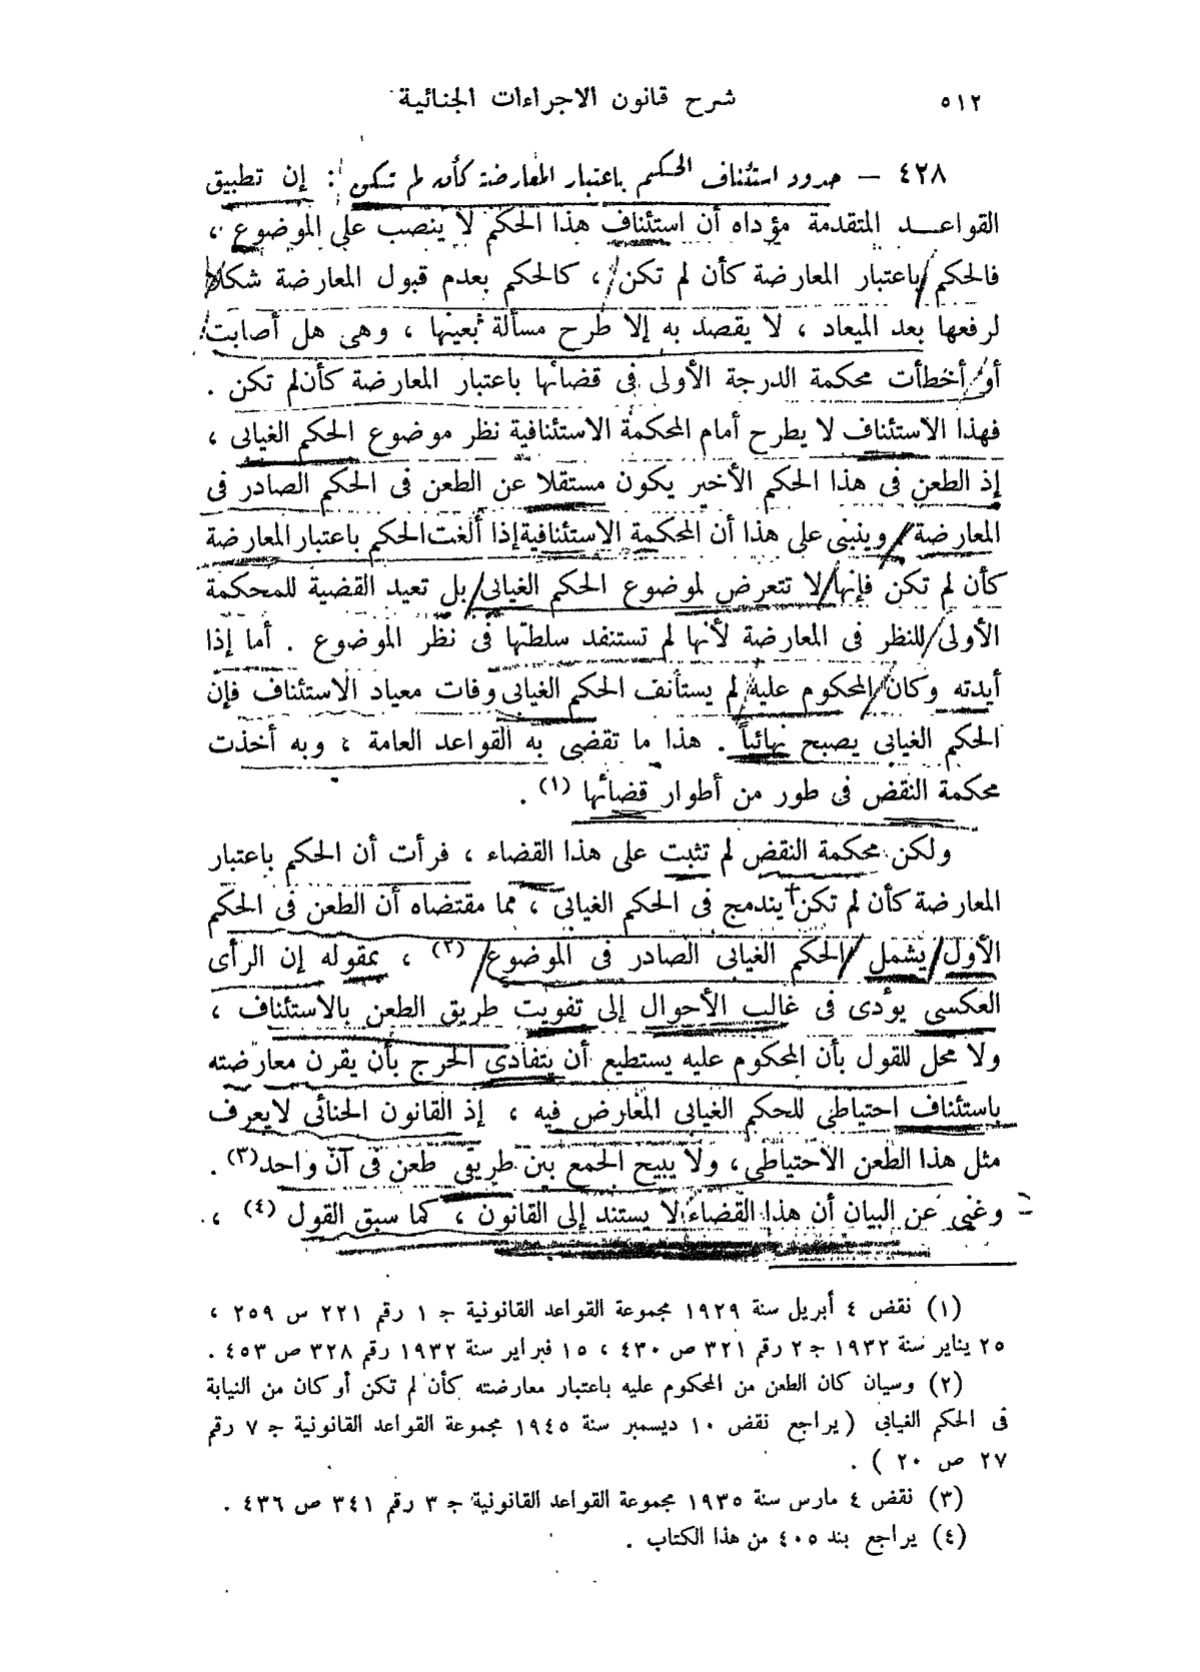 ٥١٢
شرح قانون الاجراءات الجنائية
٤٢٨ — حدود استئناف الحكم باعتبار المعارضة كأنه لم تكن : إن تطبيق
القواعد المتقدمة مؤداه أن استئناف هذا الحكم لا ينصب على الموضوع ،
فالحكم باعتبار المعارضة كأن لم تكن ، كالحكم بعدم قبول المعارضة شكلا
لرفعها بعد الميعاد ، لا يقصد به إلا طرح مسألة بعينها ، وهى هل أصابت
أو أخطأت محكمة الدرجة الأولى فى قضائها باعتبار المعارضة كأن لم تكن .
فهذا الاستئناف لا يطرح أمام المحكمة الاستئنافية نظر موضوع الحكم الغيابى ،
إذ الطعن فى هذا الحكم الأخير يكون مستقلا عن الطعن فى الحكم الصادر فى
المعارضة وينبنى على هذا أن المحكمة الاستئنافية إذا ألغت الحكم باعتبار المعارضة
كأن لم تكن فإنها لا تتعرض لموضوع الحكم الغيابى بل تعيد القضية للمحكمة
الأولى للنظر فى المعارضة لأنها لم تستنفد سلطتها فى نظر الموضوع . أما إذا
أيدته وكان المحكوم عليه لم يستأنف الحكم الغيابى وفات معياد الاستئناف فإن
الحكم الغيابى يصبح نهائياً . هذا ما تقضى به القواعد العامة ، وبه أخذت
محكمة النقض فى طور من أطوار قضائها (١) .
ولكن محكمة النقض لم تثبت على هذا القضاء ، فرأت أن الحكم باعتبار
المعارضة كأن لم تكن يندمج فى الحكم الغيابى ، مما مقتضاه أن الطعن فى الحكم
الأول يشمل الحكم الغيابى الصادر فى الموضوع (٢) ، بمقوله إن الرأى
العكسى يؤدى فى غالب الأحوال إلى تفويت طريق الطعن بالاستئناف ،
ولا محل للقول بأن المحكوم عليه يستطيع أن يتفادى الحرج بأن يقرن معارضته
باستئناف احتياطى للحكم الغيابى المعارض فيه ، إذ القانون الجنائى لا يعرف
مثل هذا الطعن الاحتياطى ، ولا يبيح الجمع بين طريقى طعن فى آن واحد (٣) .
وغنى عن البيان أن هذا القضاء لا يستند إلى القانون ، كما سبق القول (٤) ،
(١) نقض ٤ أبريل سنة ١٩٢٩ مجموعة القواعد القانونية ج ١ رقم ٢٢١ س ٢٥٩ ،
٢٥ يناير سنة ١٩٣٢ ج ٢ رقم ٣٢١ ص ٤٣٠ ، ١٥ فبراير سنة ١٩٣٢ رقم ٣٢٨ ص ٤٥٣ .
(٢) وسيان كان الطعن من المحكوم عليه باعتبار معارضته كأن لم تكن أو كان من النيابة
فى الحكم الغيابي ( يراجع نقض ١٠ ديسمبر سنة ١٩٤٥ مجموعة القواعد القانونية ج ٧ رقم
٢٧ ص ٢٠ ) .
(٣) نقض ٤ مارس سنة ١٩٣٥ مجموعة القواعد القانونية ج ٣ رقم ٣٤١ ص ٤٣٦ .
(٤) يراجع بند ٤٠٥ من هذا الكتاب .